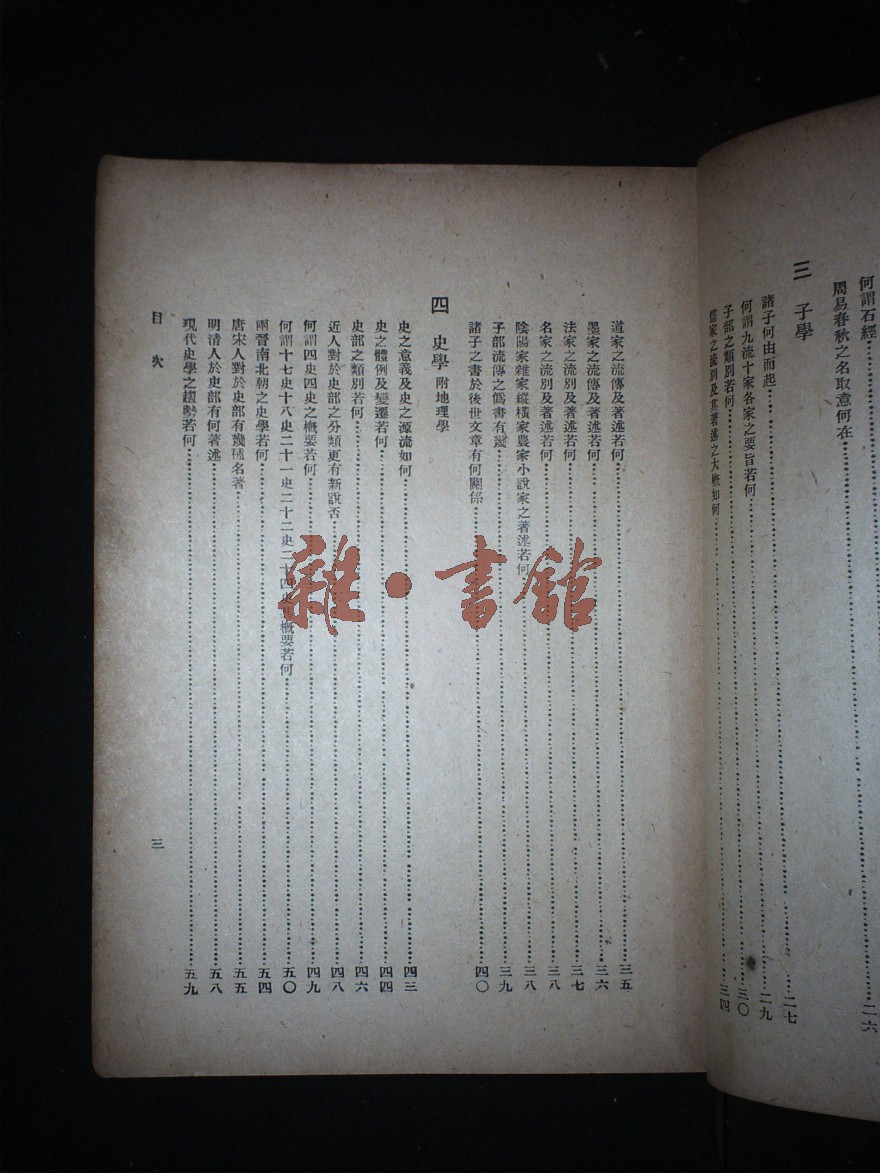 何謂石經……二六
周易春秋之名取意何在
三 子學……二七
諸子何由而起……二九
何謂九流十家各家之要旨若何……三〇
子部之類別若何……三四
儒家之流別及其著述之大概如何
道家之流傳及著述若何……三五
墨家之流傳及著述若何……三六
法家之流別及著述若何……三七
名家之流別及著述若何……三八
陰陽家雜家縱橫家農家小說家之著述若何……三八
子部流傳之偽書有幾……三九
諸子之書於後世文章有何關係……四〇
四 史學 附地理學
史之意義及史之源流如何……四三
史之體例及變遷若何……四四
史部之類別若何……四六
近人對於史部之分類更有新說否……四八
何謂四史四史之概要若何……四九
何謂十七史十八史二十一史二十二史二十四史其概要若何……五〇
兩晉南北朝之史學若何……五四
唐宋人對於史部有幾種名著……五五
明清人於史部有何著述……五八
現代史學之趨勢若何……五九
目次 三
雜·書館